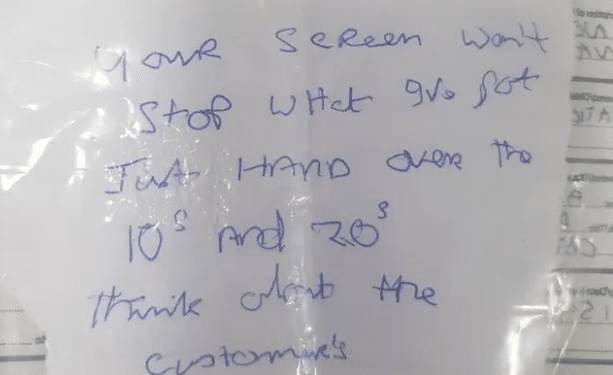 YOUR SCREEN WON'T
STOP WHAT I've got
JUST HAND OVER THE
10s AND 20s
think about the
customer's